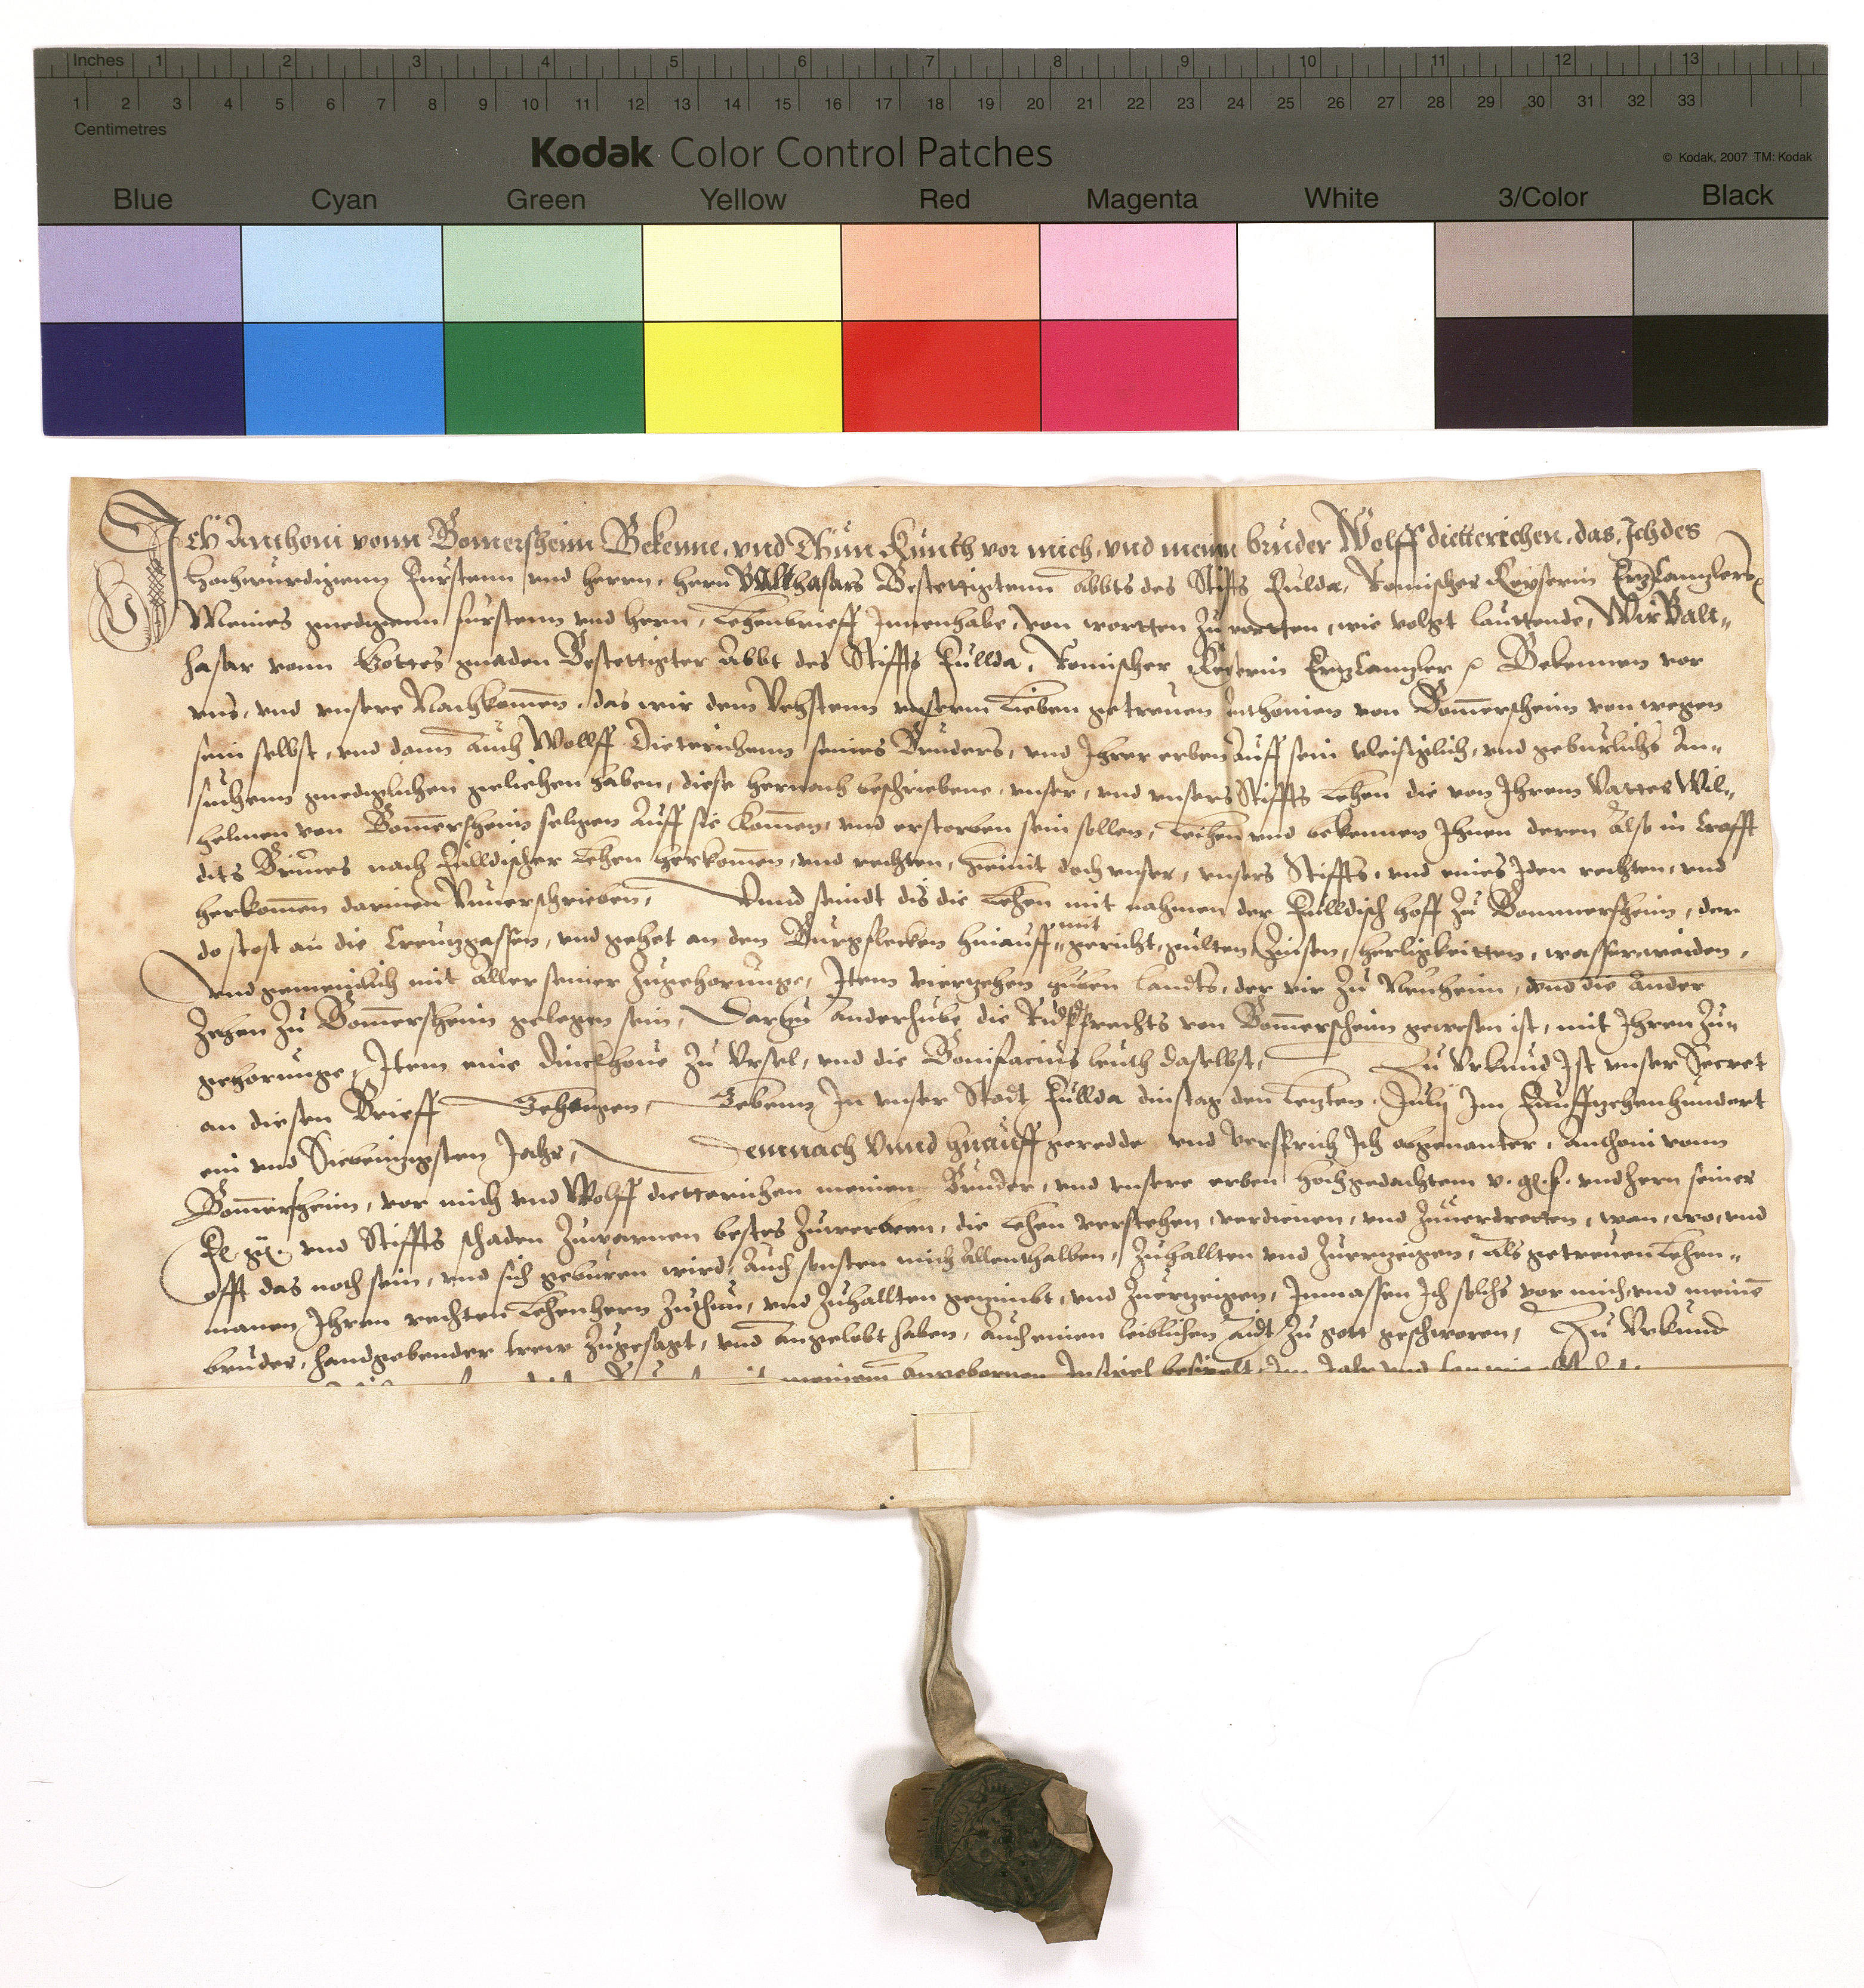 Inches 1 2 3 4 5 6 7 8 9 10 11 12 13
1 2 3 4 5 6 7 8 9 10 11 12 13 14 15 16 17 18 19 20 21 22 23 24 25 26 27 28 29 30 31 32 33
Centimetres
Kodak Color Control Patches
© Kodak, 2007 TM: Kodak
Blue Cyan Green Yellow Red Magenta White 3/Color Black
Ich Anthoni vonn Bomersheim Bekenne, vnd Thun Kunth vor mich, vnd meinen bruder Wolff dietterichen, das, Ich des
Hochwurdigenn Furstenn vnd Herrn, Hern Balthasars Bestettigtenn Abbts des Stiffts Fulda, Romischer Keyserin ErtzCantzlers
Meines gnedigenn furstenn vnd Hern, Lehenbrieff Innenhabe, von wortten zu wortten, wie volgt lauttende, Wir Balt-
hasar vonn Gottes gnaden Bestettigter Abbt des Stiffts Fullda, Romischer Keyserin ErtzCantzler Bekennen vor
vns, vnd vnsere Nachkomen, das wir dem Vehstenn vnserm Lieben getreuen Anthonien von Bomersheim von wegen
sein selbst, vnd dann auch Wolff Dieterichenn seines Bruders, vnd Ihrer erben Auff sein vleissiglich, vnd geburlichs An-
suchenn gnediglichen geliehen haben, diese hernach beschriebene, vnser, vnd vnsers Stiffts Lehen die von Ihrem Vatter Wil-
helmen von Bomersheim seligen Auff sie Komen, vnd erstorben sein sollen, Leihen vnd bekennen Ihnen deren Also in Crafft
dits Brieues nach Fulldischer Lehen herkomen, vnd rechten, hiemit doch vnser, vnsers Stiffts, vnd eines Iden rechten, vnd
herkomen darinen Vnuerschrieben, Vnnd seindt dis die Lehen mit nahmen der Fulldisch hoff zu Bommersheim, der
do stost an die Creutzgassen, vnd gehet an den Burgflecken hinauff mit gericht, gulten Zinsen, herligkeitten, wasser, weiden,
vnd gemeinlich mit Aller seiner Zugehorunge, Item vierzehen huben landts, der vir zu Neuheim, vnd die Ander
Zehen zu Bomersheim gelegen sein, Darzu anderhube die Ruprechts von Bomersheim gewesen ist, mit Ihren Zu-
gehorunge, Item eine Dinckhoue zu Vrsel, vnd die Bonifacius leuth daselbst, Zu Vrkund Ist vnser Secret
an diesen Brieff Gehangen, Gebenn In vnser Stadt Fullda dinstag den Letzten July Im Funffzehenhundert
ein vnd Siebentzigsten Jahr, Demnach vnnd hirauff geredde vnd versprich Ich obgenanter, Anthoni vonn
Bomersheim, vor mich vnd Wolff dietterichen meinen Bruder, vnd vnsere erben hochgedachtem v. g. f. vnd hern seiner
F. g. vnd Stiffts schaden Zuwarnen bestes Zuwerben, die Lehen verstehen, verdienen, vnd Zuuerdretten, wan, wo, vnd
offt das noth sein, vnd sich geburen wird, Auch sonsten mich Allenthalben, Zuhallten vnd Zuerzeigen, Als getreuen Lehen-
manen Ihren rechten Lehenhern Zuthun, vnd Zuhallten gezimbt, vnd Zuerzeigen, Inmassen Ich solchs vor mich, vnd meinen
bruder, handgebender trew Zugesagt, vnd Angelobt haben, Auch einen leiblichen Aidt zu gott geschworen, Zu Vrkund
meinem Angebornen Insiegel besiegelt, Im Jahr vnd